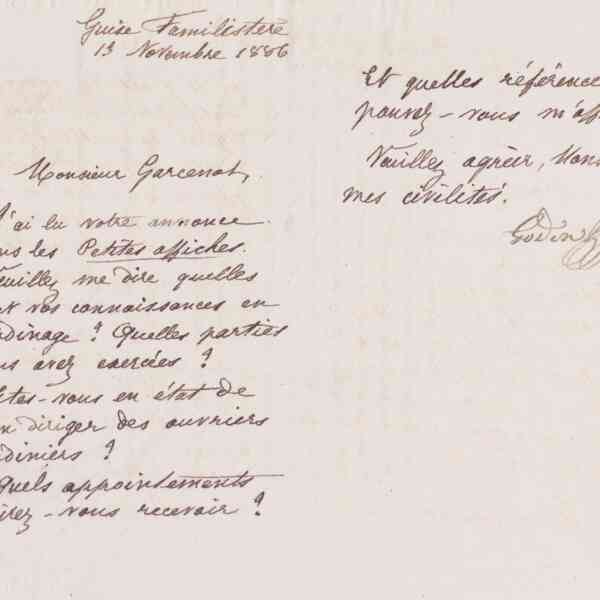 Guise Familistère
13 Novembre 1886
Monsieur Garcenot,
J'ai lu votre annonce
ns les Petites affiches.
Veuillez me dire quelles
nt vos connaissances en
rdinage ? Quelles parties
us avez exercées ?
Êtes-vous en état de
en diriger des ouvriers
rdiniers ?
Quels appointements
irez-vous recevoir ?
Et quelles référence
pouvez-vous m'off
Veuillez agréer, Mons
mes civilités.
Godin